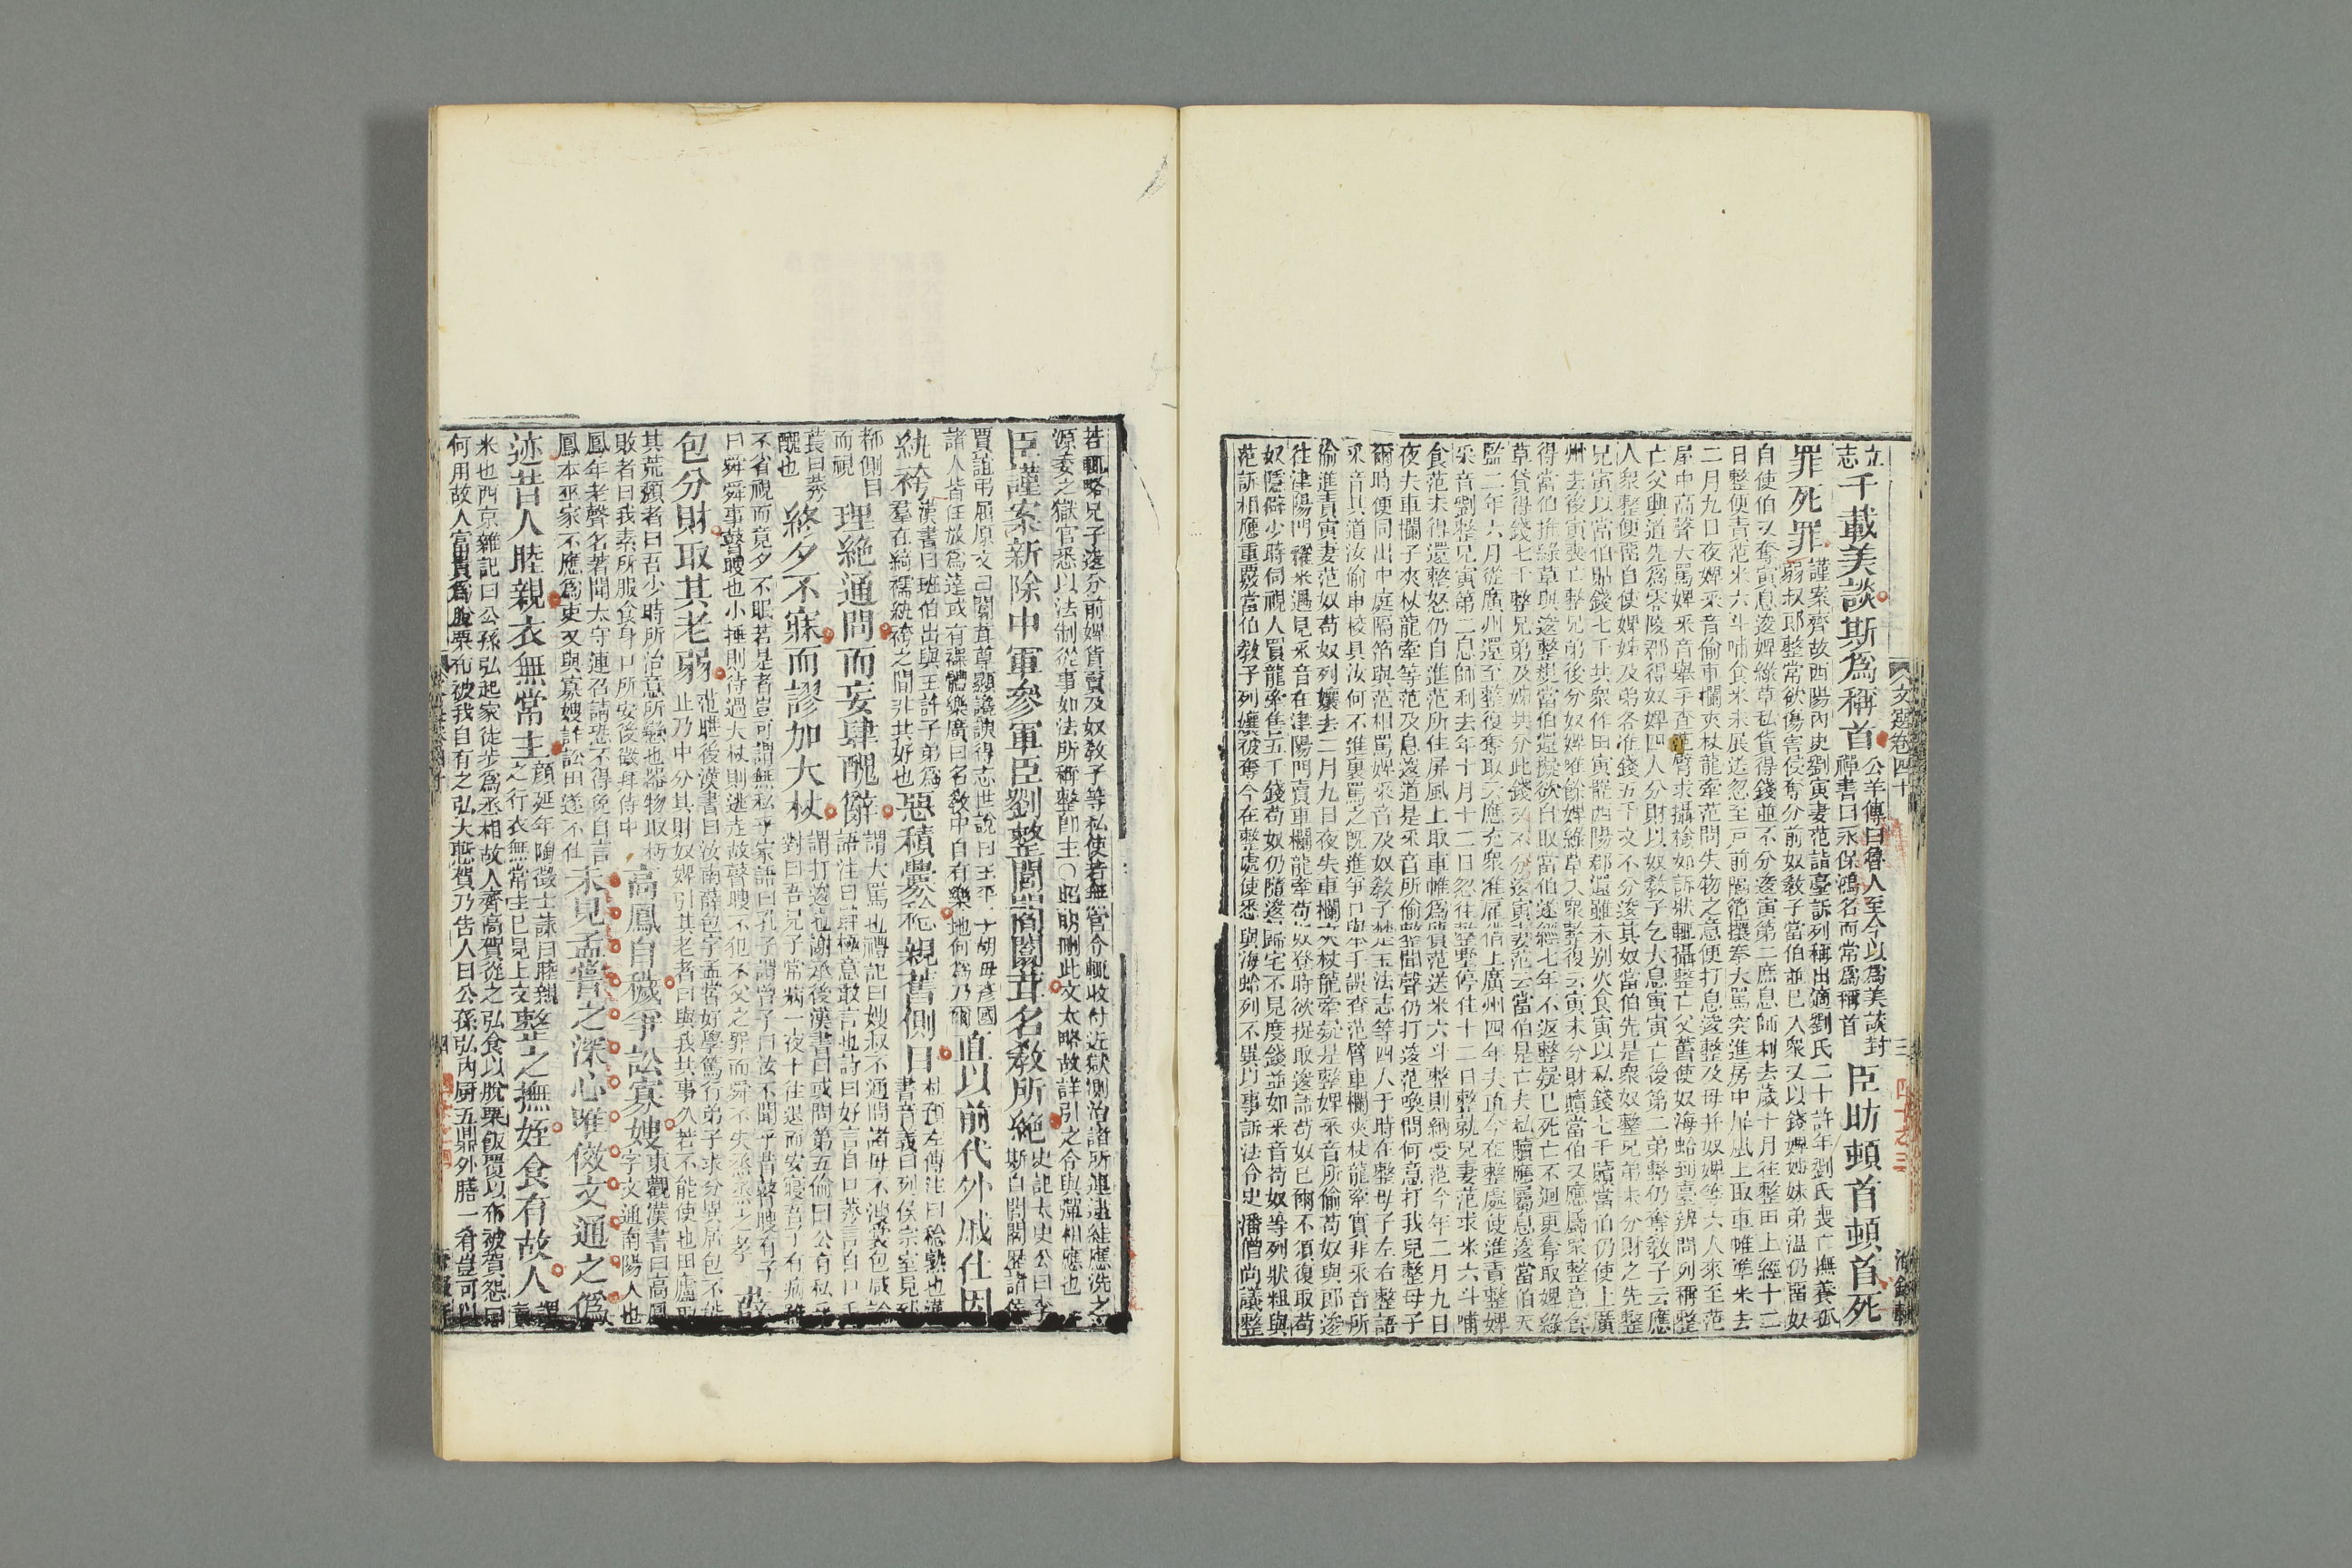 文選卷四十 三
立志千載美談斯爲稱首公羊傳曰魯人至今以爲美談封禪書曰永保鴻名而常爲稱首臣昉頓首頓首死
罪死罪謹案齊故西陽內史劉寅妻范詣臺訴列稱出適劉氏二十許年劉氏喪亡撫養孤
弱叔郎整常欲傷害侵奪分前奴教子當伯並已入衆又以錢婢姊妹弟温仍留奴
自使伯又奪寅息逡婢綠草私貨得錢並不分逡寅第二庶息師利去歲十月往整田上經十二
日整便責范米六斗哺食米未展送忽至戶前隔箔攘拳大罵突進房中屏風上取車帷準米去
二月九日夜婢采音偷車欄夾杖龍牽范問失物之意便打息逡整及母并奴婢等六人來至范
屋中高聲大罵婢采音舉手查范臂求攝檢如訴狀輒攝整亡父舊使奴海蛤到臺辨問列稱整
亡父興道先爲零陵郡得奴婢四人分財以奴教子乞大息寅寅亡後第二弟整仍奪教子云應
入衆整便留自使婢姊及弟各准錢五千文不分逡其奴當伯先是衆奴整兄弟未分財之先整
兄寅以當伯貼錢七千共衆作田寅罷西陽郡還雖未别火食寅以私錢七千贖當伯仍使上廣
州去後寅喪亡整兄弟後分奴婢唯餘婢綠草入衆整復云寅未分財贖當伯又應屬衆整意貪
得當伯推綠草與逡整規當伯還擬欲自取當伯遂經七年不返整疑已死亡不迴更奪取婢綠
草貨得錢七千整兄弟及姊共分此錢又不分逡寅妻范云當伯是亡夫私贖應屬息逡當伯天
監二年六月從廣州還至整復奪取云應充衆准雇借上廣州四年夫直今在整處使進責整婢
采音劉整兄寅第二息師利去年十月十二日忽往整墅停住十二日整就兄妻范求米六斗哺
食范未得還整怒仍自進范所住屏風上取車帷爲質范送米六斗整則納受范今年二月九日
夜失車欄子夾杖龍牽等范及息逡道是采音所偷整聞聲仍打逡范喚問何意打我兒整母子
爾時便同出中庭隔箔與范相罵婢采音及奴教子楚玉法志等四人于時在整母子左右整語
采音其道汝偷車校具汝何不進裏罵之既進爭口與本手誤查范臂車欄夾杖龍牽實非采音所
偷進責寅妻范奴苟奴列孃去二月九日夜失車欄夾杖龍牽疑是整婢采音所偷苟奴與郎逡
往津陽門糴米遇見采音在津陽門賣車欄龍牽苟奴登時欲捉取逡語苟奴已爾不須復取苟
奴隱僻少時伺視人買龍牽售五千錢苟奴仍隨逡歸宅不見度錢並如采音苟奴等列狀粗與
范訴相應重覈當伯教子列孃被奪今在整處使悉與海蛤列不異以事訴法令史潘僧尚議整
若輒略兄子逡分前婢貨賣及奴教子等私使若無官令輒收付近獄測治諸所連逮絓應洗之
源委之獄官悉以法制從事如法所稱整即主○昭明刪此文太略故詳引之令與彈相應也
臣謹案新除中軍參軍臣劉整閭閻闒茸名教所絶史記太史公曰李斯自閭閻歷諸侯
賈誼弔屈原文曰闒茸尊顯讒諛得志世說曰王平子胡毋彥國
諸人皆任放爲達或有裸體樂廣曰名教中自有樂地何爲乃爾直以前代外戚仕因
紈袴漢書曰班伯出與王許子弟爲羣在綺襦紈袴之間非其好也惡積釁稔親舊側目杜預左傳注曰稔熟也漢書音義曰列侯宗室見郅
都側目而視理絶通問而妄肆醜辭謂大罵也禮記曰嫂叔不通問諸母不漱裳包咸論語注曰肆極意敢言也詩曰好言自口莠言自口毛
萇曰莠醜也終夕不寐而謬加大杖謂打逡也謝承後漢書曰或問第五倫曰公有私乎對曰吾兄子常病一夜十往退而安寢吾子有病雖
不省視而竟夕不眠若是者豈可謂無私乎家語曰孔子謂曾子曰汝不聞乎昔瞽瞍有子
曰舜舜事瞽瞍也小捶則待過大杖則逃走故瞽瞍不犯不父之罪而舜不失烝烝之孝薛
包分財取其老弱范曄後漢書曰汝南薛包字孟嘗好學篤行弟子求分異居包不能止乃中分其財奴婢引其老者曰與我共事久若不能使也田廬取
其荒頹者曰吾少時所治意所戀也器物取朽
敗者曰我素所服食身口所安後徵拜侍中高鳳自穢爭訟寡嫂東觀漢書曰高鳳字文通南陽人也
鳳年老聲名著聞太守連召請恐不得免自言
鳳本巫家不應爲吏又與寡嫂詐訟田遂不仕未見孟嘗之深心唯傚文通之僞
迹昔人睦親衣無常主顏延年陶徵士誄曰睦親之行衣無常主已見上文整之撫姪食有故人
米也西京雜記曰公孫弘起家徒步爲丞相故人齊高賀從之弘食以脫粟飯覆以布被賀怨曰
何用故人富貴爲脫粟布被我自有之弘大慙賀乃告人曰公孫弘內厨五鼎外膳一肴豈可以